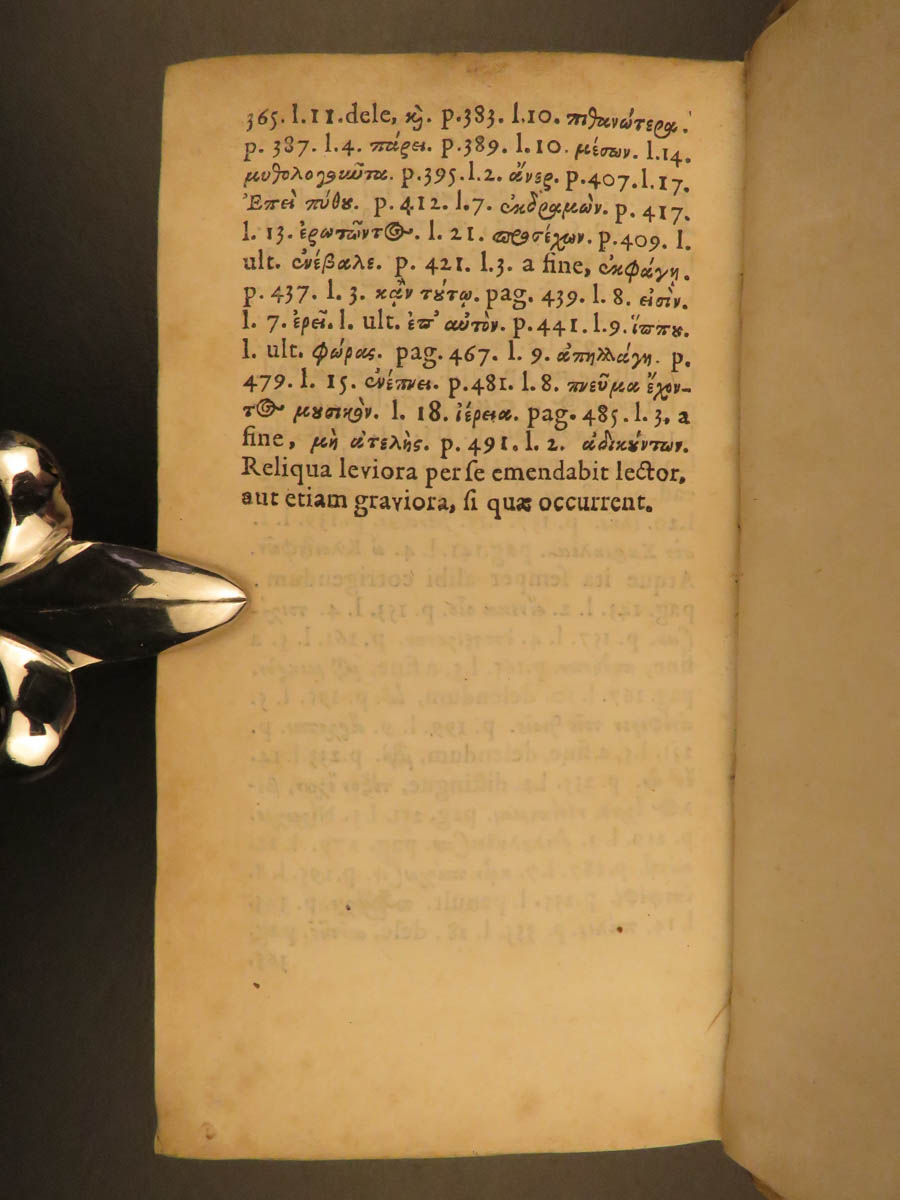 365. l.11.dele, ϗ̀. p.383. l.10. πιθανώτερα.
p. 387. l.4. πάρει. p.389. l.10. μέσων. l.14.
μυθολογικῶτα. p.395.l.2. ἄνερ. p.407.l.17.
Ἐπεὶ πύθȣ. p. 412. l.7. ἐκδραμὼν. p. 417.
l. 13. ἐρωτῶντος. l. 21. προσέχων. p.409. l.
ult. ἐνέβαλε. p. 421. l.3. a fine, ἐκφάγῃ.
p.437. l. 3. κᾂν τȣ́τῳ. pag. 439. l. 8. εἰσὶν.
l. 7. ἐρεῖ. l. ult. ἐπ' αὐτὸν. p.441. l.9. ἵππȣ.
l. ult. φώρας. pag. 467. l. 9. ἀπηλλάγη. p.
479. l. 15. ἐνέπνει. p.481. l.8. πνεῦμα ἔχον-
τος μȣσικὸν. l. 18. ἱέρεια. pag. 485. l.3. a
fine, μὴ ἀτελὴς. p. 491. l. 2. ἀδικȣ́ντων.
Reliqua leviora per ſe emendabit lector,
aut etiam graviora, ſi quæ occurrent.